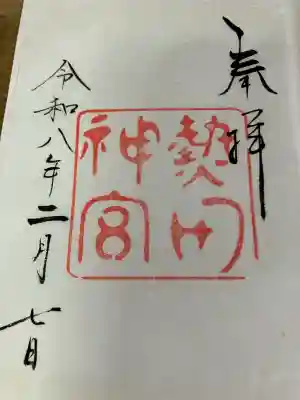 奉拝
熱田
神宮
令和八年二月七日